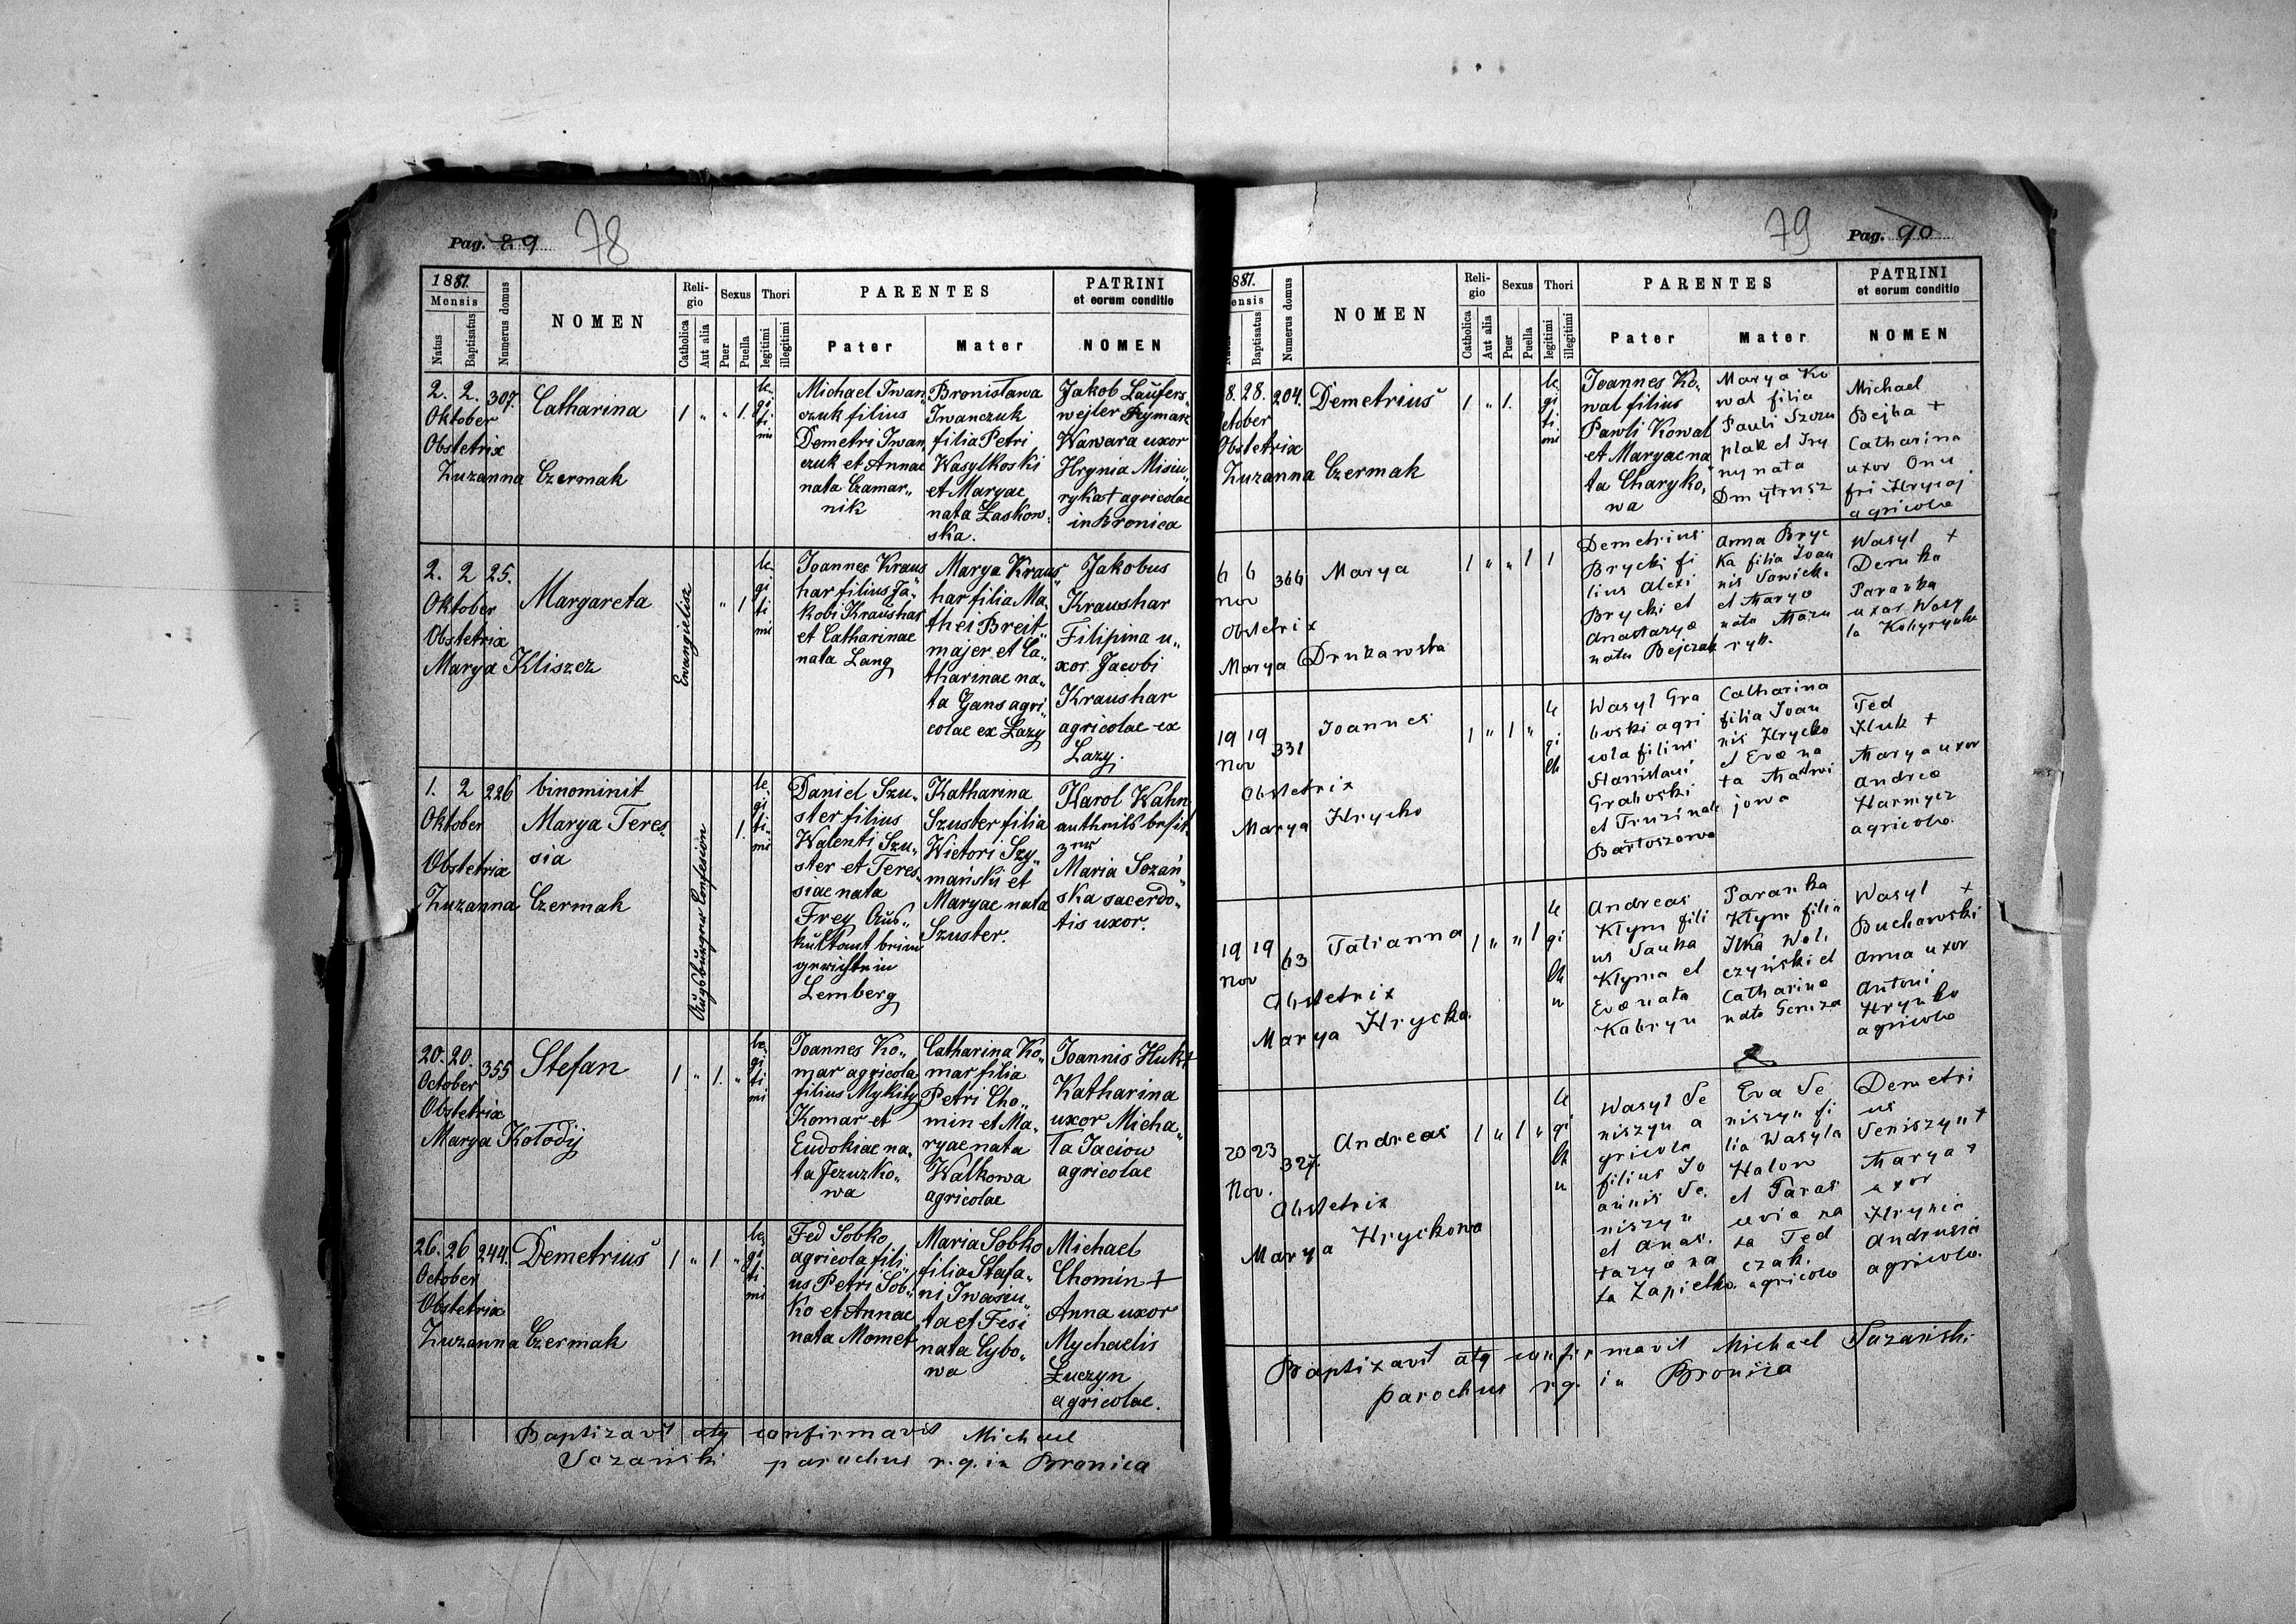 Pag. 89 78
1881.
Mensis
Natus
Baptisatus
Numerus domus
NOMEN
Reli-
gio
Catholica
Aut alia
Sexus
Puer
Puella
Thori
legitimi
illegitimi
PARENTES
Pater
Mater
PATRINI
et eorum conditio
NOMEN
2. 2. 307.
Oktober
Obstetrix
Zuzanna Czermak
Catharina
1 „ „ 1.
le
gi
ti
mi
Michael Iwan„
czuk filius
Demetri Iwan
czuk et Annae
nata Czamar„
nik
Bronisława
Iwanczuk
filia Petri
Wasylkoski
et Maryae
nata Łaskow„
ska.
Jakob Laufers„
wejler Rymarz
Wawara uxor
Hrynia Misiu„
ryka + agricolae
in Bronica
2. 2 25.
Oktober
Obstetrix
Marya Kliszcz
Margareta
Ewangielisz
„ 1
le
gi
ti
mi
Joannes Kraus
har filius Ja„
kobi Kraushar
et Catharinae
nata Lang
Marya Kraus„
har filia Ma„
thei Breit„
majer et Ca„
tharinae na„
ta Gans agri„
colae ex Łazy
Jakobus
Kraushar
Filipina u„
xor Jacobi
Kraushar
agricolae ex
Łazy.
1. 2 226
Oktober
Obstetrix
Zuzanna Czermak
binominit
Marya Teres„
sia
Augsburgner Confesion
1.
le
gi
ti
mi
Daniel Szu„
ster filius
Walenti Szu„
ster et Teres„
siae nata
Frey Aus„
kultant beim
gerichte in
Lemberg
Katharina
Szuster filia
Wictori Szy„
mański et
Maryae nata
Szuster.
Karol Kahn
antheils besit
zer
Maria Sozań„
ska sacerdo„
tis uxor.
20. 20. 355
October
Obstetrix
Marya Kołodij
Stefan
1 „ 1. „
le
gi
ti
mi
Joannes Ko„
mar agricola
filius Mykity
Komar et
Eudokiae na„
ta Jezuzko„
wa
Catharina Ko„
mar filia
Petri Cho„
min et Ma„
ryae nata
Walkowa
agricolae
Joannis Huk +
Katharina
uxor Micha„
ła Jaciow
agricolae
26. 26 244.
October
Obstetrix
Zuzanna Czermak
Demetrius
1 „ 1 „
le
gi
ti
mi
Fed Sobko
agricola fili„
us Petri Sob„
ko et Annae
nata Momet
Maria Sobko
filia Stefa„
ni Iwasiu„
ta et Fesi
nata Cybo„
wa
Michael
Chomin +
Anna uxor
Mychaelis
Łuczyn
agricolae.
Baptizavit atq confirmavit Michael
Sozański parochus r. g. in Bronica
79 Pag. 90
881.
ensis
Natus
Baptisatus
Numerus domus
NOMEN
Reli-
gio
Catholica
Aut alia
Sexus
Puer
Puella
Thori
legitimi
illegitimi
PARENTES
Pater
Mater
PATRINI
et eorum conditio
NOMEN
8. 28. 204.
ctober
Obstetrix
Zuzanna Czermak
Demetrius
1 „ 1.
le
gi
ti
mi
Joannes Ko„
wal filius
Pawli Kowal
et Maryae na„
ta Charyko„
wa
Marya Ko
wal filia
Pauli Szczu
plak et Iry
ny nata
Dmytrusz
Michael
Bejba +
Catharina
uxor Onu
fri Hrycaj
agricolae
6 6 366
Nov
Obstetrix
Marya Drukawska
Marya
1 „ „ 1 1
Demetrius
Brycki fi
lius Alexi
Brycki et
Anastazyae
nata Bejczak
Anna Bryc
ka filia Joan
nis Sawicki
et Maryae
nata Mazu
ryk.
Wasyl +
Deruka
Paranka
uxor Wasy
la
19 19 331
Nov
Obstetrix
Marya Hrycko
Joannes
1 „ 1 „
le
gi
Wasyl Gra
boski agri
cola filius
Stanislaui
Graboski
et Fruzi nata
Bartoszowa
Catharina
filia Joan
nis Hrycko
et Evae na
ta Matwi
jowa
Fed
Huk +
Marya uxor
Andreae
Harmycz
agricolae.
19 19 63
Nov
Obstetrix
Marya Hrycko.
Tatianna
1 „ „ 1
le
gi
Andreas
Kłym fili
us Sauka
Kłyma et
Evae nata
Kobryn
Paranka
Kłym filia
Ilka Wol.
czyński et
Catharinae
nata
Wasyl +
Buchowski
Anna uxor
Antoni
Hrynko
agricolae
20 23 327.
Nov.
Obstetrix
Marya Hryckowa
Andreas
1 „ 1 „
le
gi
Wasyl Se
niszyn a
gricola
filius Jo
annis Se.
niszyn
et Anas.
tazyae na
ta Zapietko.
Eva Se
niszyn fi
lia Wasyla
Halow
et Paras
cevia na
ta Fed
czak.
agricolae
Demetri
us
Seniszyn +
Marya
uxor
Hrynia
Andrusia
agricolae.
Baptizavit atq confirmavit Michael Sozański
parochus r. g. in Bronica